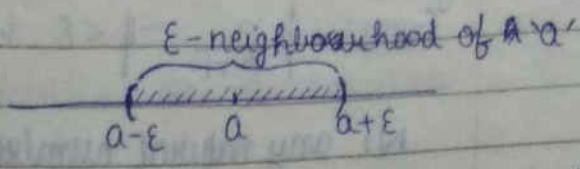 ε-neighbourhood of 'a'
a-ε a a+ε